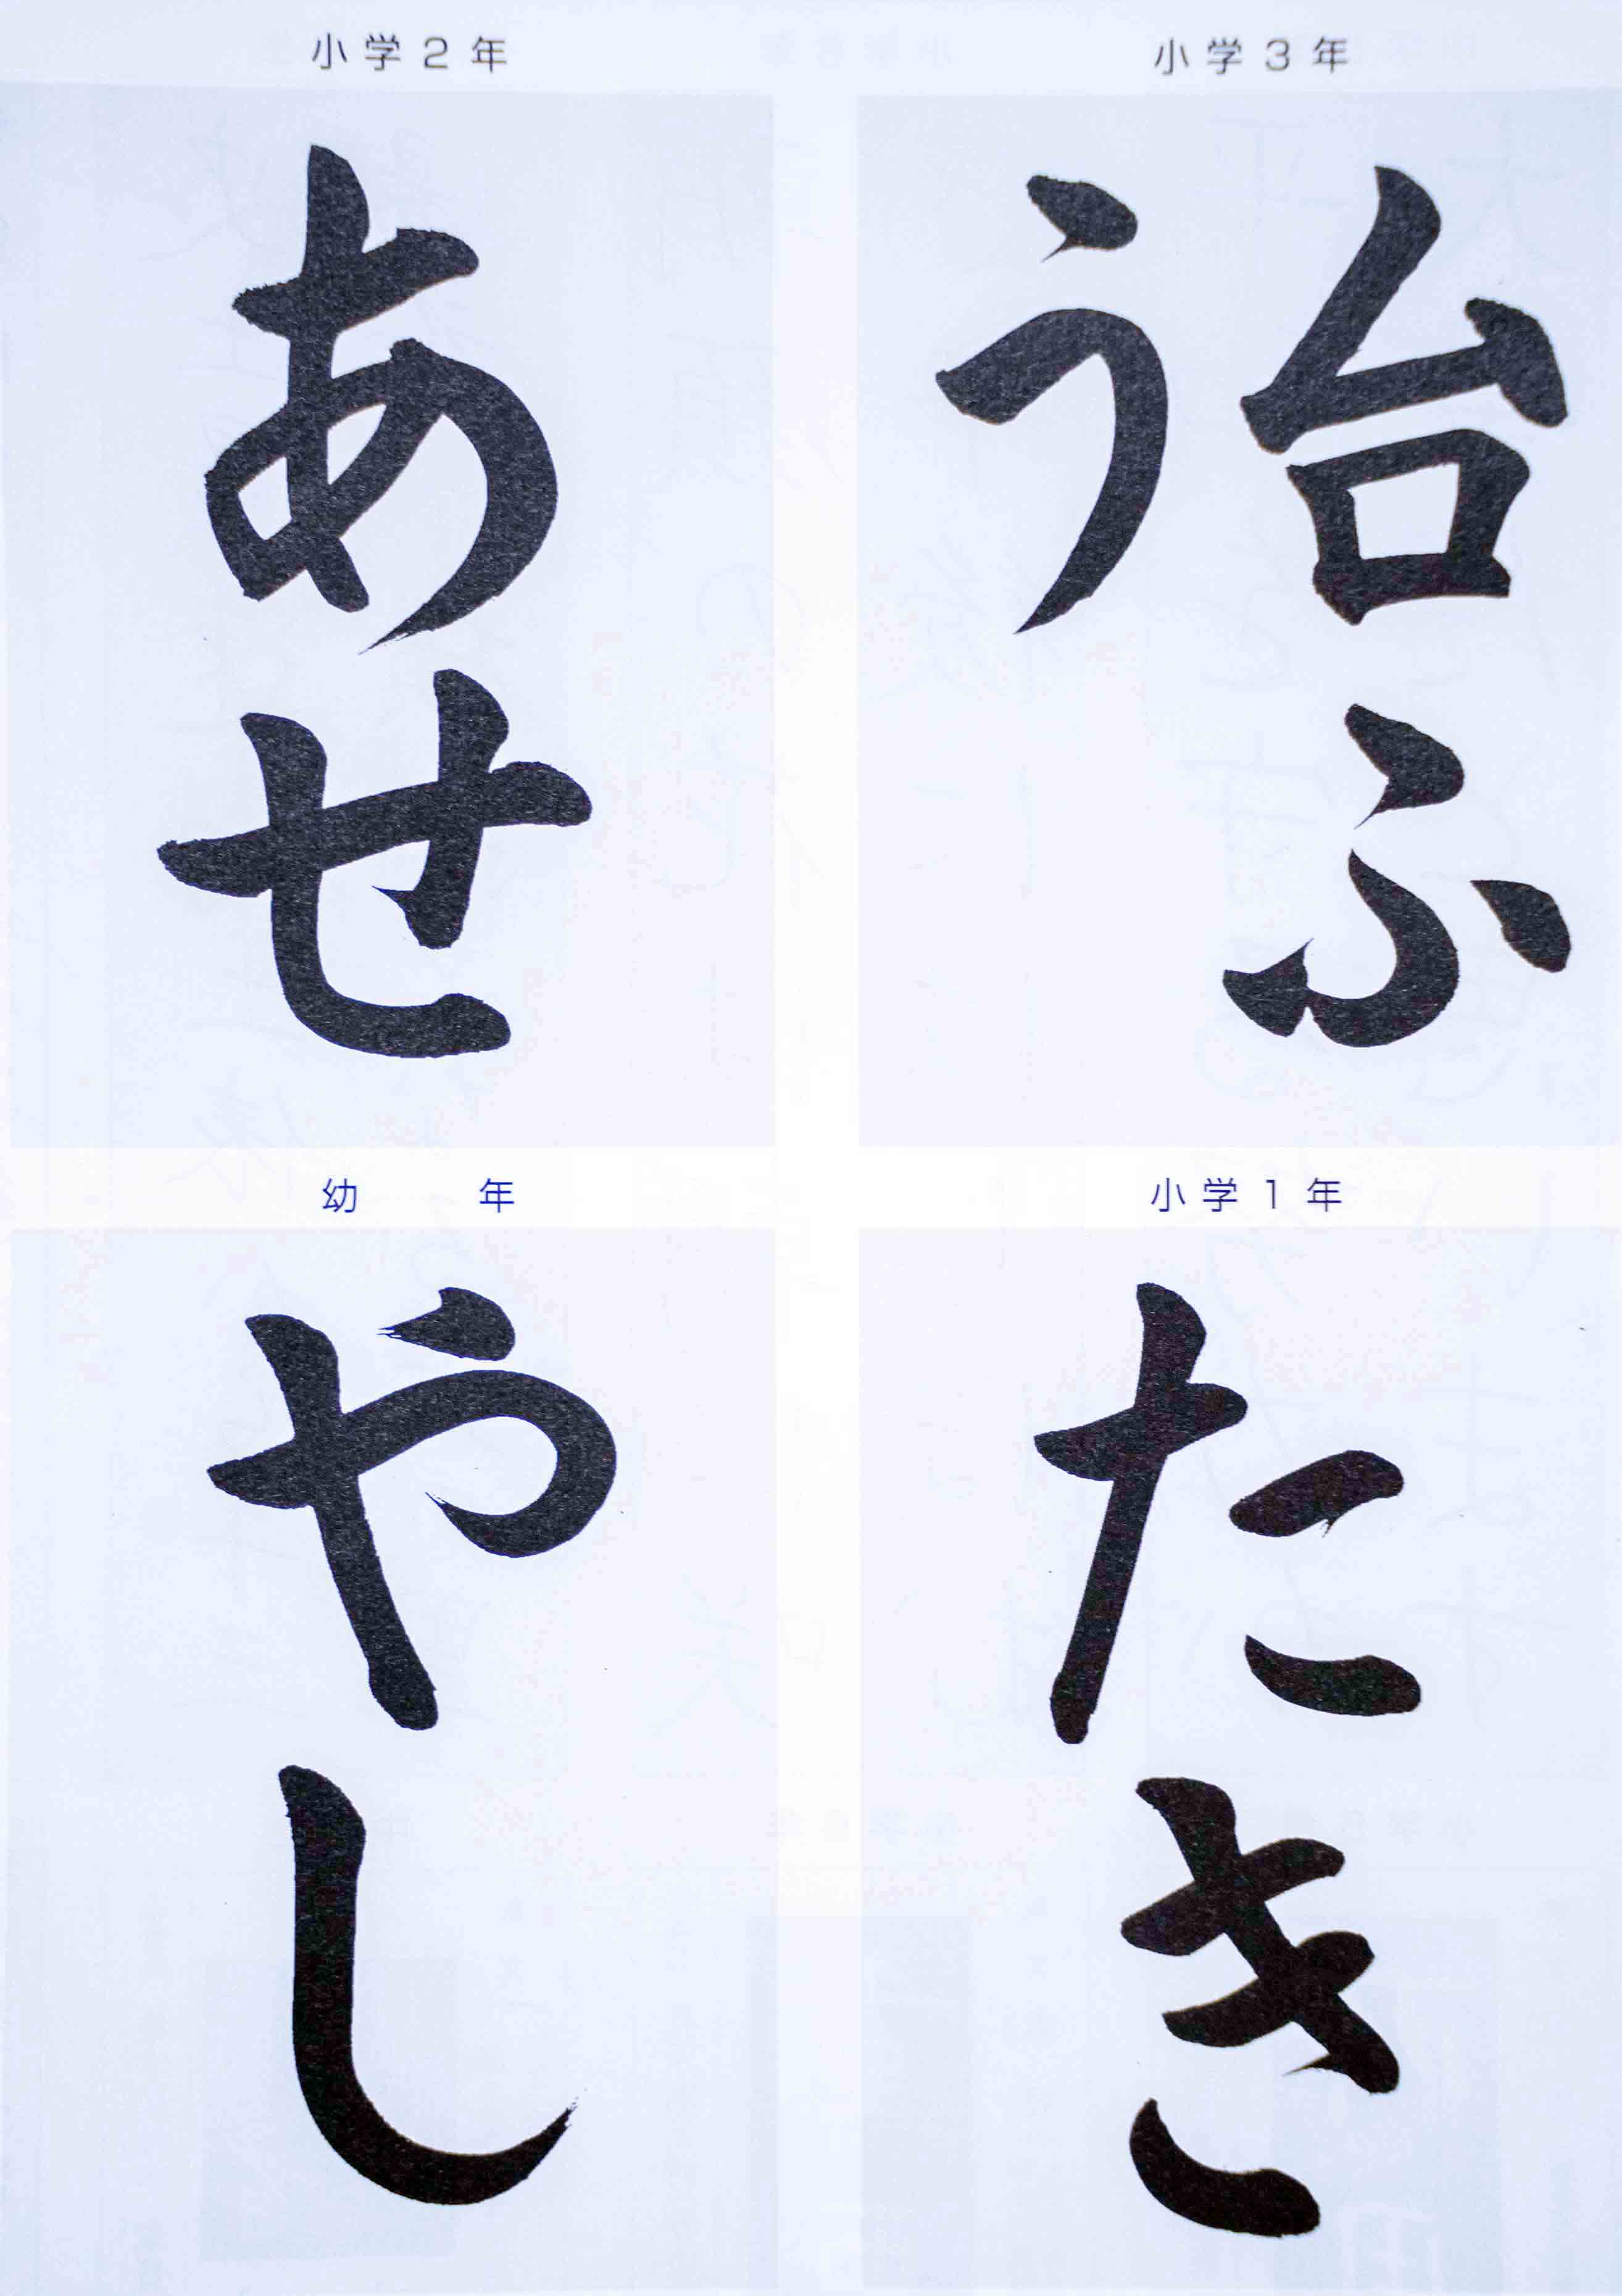 小学3年
台ふ
う
小学2年
あせ
小学1年
たき
幼年
やし